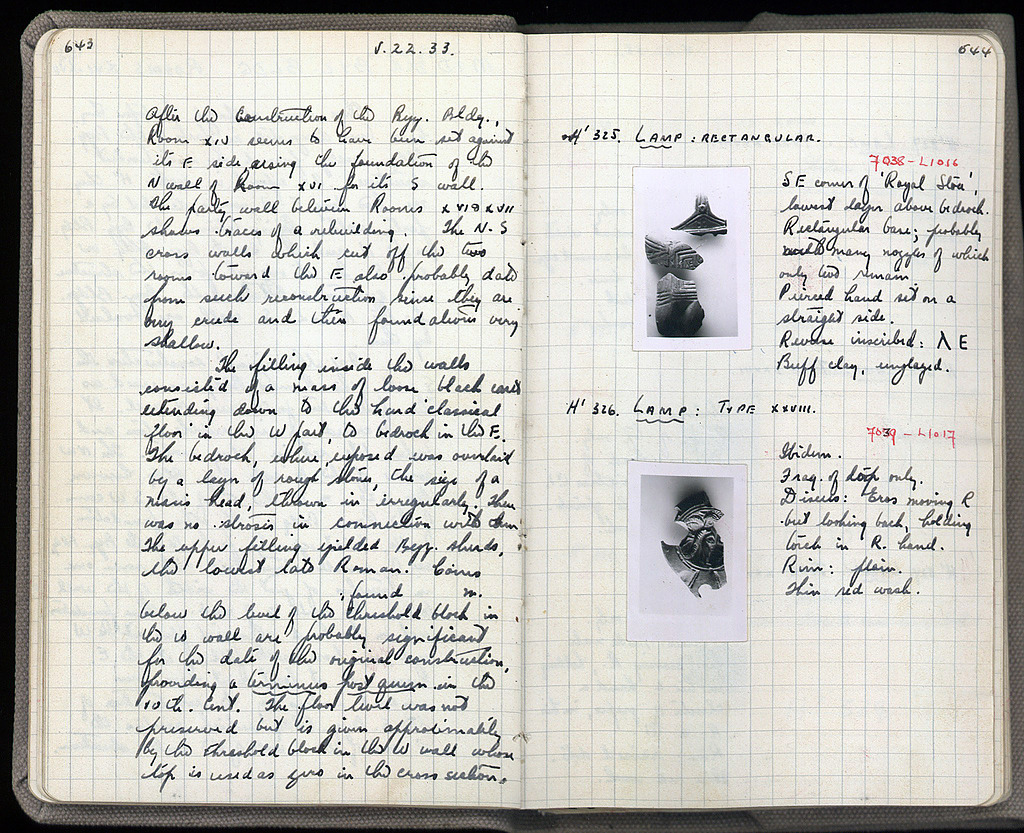 643
V.22.33.
After the construction of the Byz. Bldg.,
Room XIV seems to have been set against
its E side, using the foundation of the
N wall of Room XVI for its S wall.
The party wall between Rooms XVI & XVII
shows traces of a rebuilding. The N-S
cross walls which cut off the two
rooms toward the E also probably date
from such reconstruction since they are
very crude and their foundations very
shallow.
The filling inside the walls
consisted of a mass of loose black earth
extending down to the hard 'classical
floor' in the W part, to bedrock in the E.
The bedrock, where exposed was overlaid
by a layer of rough stones, the size of a
man's head, thrown in irregularly. There
was no strosis in connection with them.
The upper filling yielded Byz. sherds,
the lowest late Roman. Coins
found m.
below the level of the threshold block in
the W wall are probably significant
for the date of the original construction,
providing a terminus post quem in the
10th. cent. The floor level was not
preserved but is given approximately
by the threshold block in the W wall whose
top is used as zero in the cross section.
644
H' 325. LAMP: RECTANGULAR.
7038 - L1016
SE corner of 'Royal Stoa',
lowest layer above bedrock.
Rectangular base; probably
with many nozzles of which
only two remain.
Pierced hand set on a
straight side.
Reverse inscribed: Λ E
Buff clay, unglazed.
H' 326. LAMP: TYPE XXVIII.
7039 - L1017
Ibidem.
Frag. of top only.
Discus: Eros moving R
but looking back, holding
torch in R. hand.
Rim: plain.
Thin red wash.